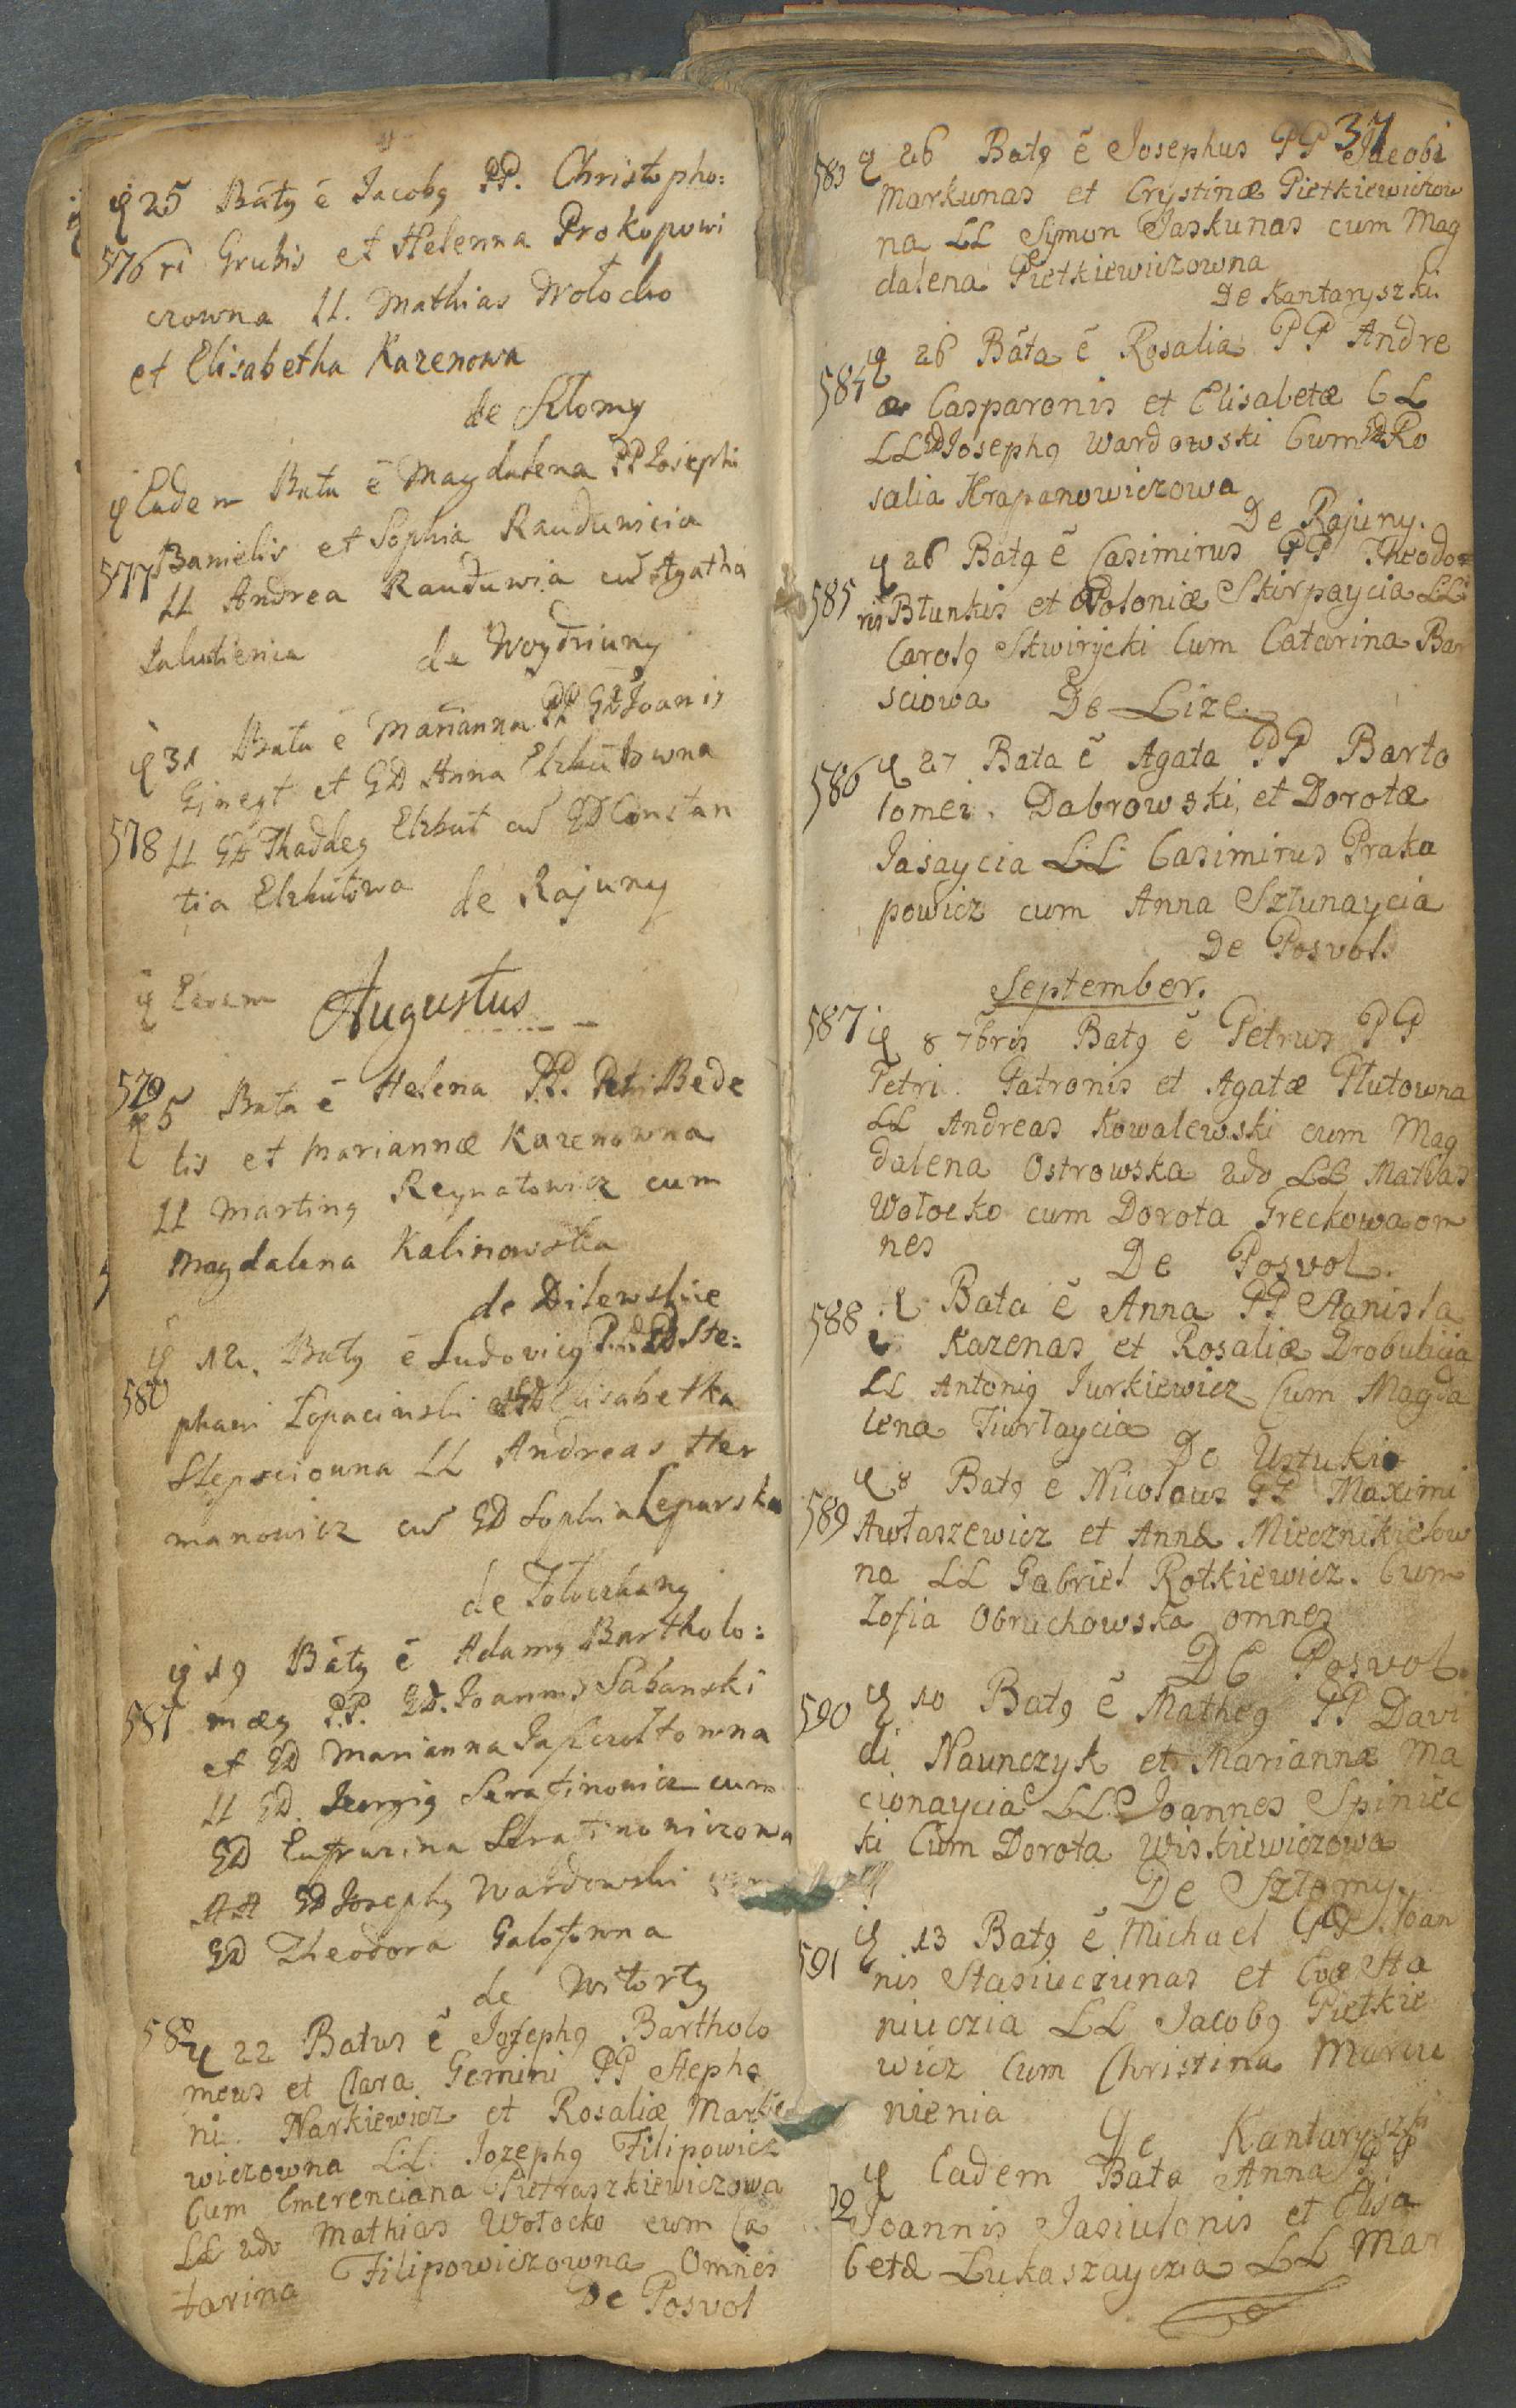 25 Batꝯ ē Jacobꝯ PP. Christopho:
576 ri Grubis et Helenna Prokopowi
czowna LL. Mathias Wołocko
et Elisabetha Kazenowa
de
Eadem Bata ē Magdalena PP Josephi
577 Banielis et Sophia Rauduwicia
LL Andrea Rauduwia cū Agatha
de Woydziuny
31 Bata ē Marianna PP GD Joanis
et GD Anna
578 LL GD Thaddeꝯ Elzbut cū GD Constan
tia de Rajuny
Eadem Augustus
579
5 Bata ē Helena PP. Petri Bede
lis et Mariannæ Kazenowna
LL Martinꝯ Reynatowicz cum
Magdalena Kalinowska
de
12. Batꝯ ē Ludovicꝯ GD Ste:
580
phani Łopacinski GD Elisabetha
LL Andreas Her
manowicz cū GD Sophia Lepurska
de
19 Batꝯ ē Adamꝯ Bartholo:
581 mæꝯ P.P. GD. Joannis Sabanski
et GD Marianna
LL GD Georgiꝯ Serafinowicz cum
GD Eufrozina Serafinowiczowa
AA GD Josephꝯ Wardowski
GD Theodora
de
582
22 Batus ē Josephꝯ Bartholo
meus et Clara Gemini PP Stepha
ni Narkiewicz et Rosaliæ Markie
wiczowna LL: Jozephꝯ Filipowicz
Cum Emerenciana Pietraszkiewiczowa
LL 2do Mathias Wołocko cum Ca
tarina Filipowiczowna Omnes
De Posvol
37
583 26 Batꝯ ē Josephus PP Jacobi
Markunas et Crystinæ Pietkiewiczow
na LL Symon Jaskunas cum Mag
dalena Pietkiewiczowna
De Kantaryszki.
26 Bata ē Rosalia PP Andre
584
æ Casparonis et Elisabetæ C L
LL GD Josephꝯ Wardowski Cum GD Ro
salia Hrapanowiczowa
De Rajuny.
26 Batꝯ ē Casimirus PP Theodo
585 ris Blunkis et Poloniæ Skirpaycia LL
Carolꝯ Skwirycki Cum Catarina Bar
sciowa De Lize
586 27 Bata ē Agata PP Barto
lomei. Dabrowski, et Dorotæ
Jasaycia LL: Casimirus Praka
powicz cum Anna Szlunaycia
De Posvol.
September.
587 8 7bris Batꝯ ē Petrus PP
Petri Gatronis et Agatæ Plutowna
LL Andreas Kowalewski cum Mag
dalena Ostrowska 2do LL Mathas
Wołocko cum Dorota Greckowa om
nes De Posvol.
588 Bata ē Anna PP Stanisla
i Kazenas et Rosaliæ Drobulicia
LL Antoniꝯ Jurkiewicz Cum Magda
lena Tiurlaycia
De Ustukie
8 Batꝯ ē Nicolaus PP Maximi
589 Awłaszewicz et Annæ Miecznikielow
na LL Gabriel Rotkiewicz. Cum
Zofia Obruchowska omnes
DE Posvol.
590 10 Batꝯ ē Matheꝯ PP Davi
di Naunczyk et Mariannæ Ma
cionaycia LL. Joannes Spiniec
ki Cum Dorota Wiskiewiczowa
De Szłomy.
13 Batꝯ ē Michael PP Joan
591 nis Stasiucziunas et Evæ Sta
niuczia LL Jacobꝯ Pietkie
wicz Cum Christina Marcu
nienia De Kantaryszki
Eadem Bata Anna PP
92 Joannis Jasiulonis et Elisa
betæ Lukaszayczia LL Mar